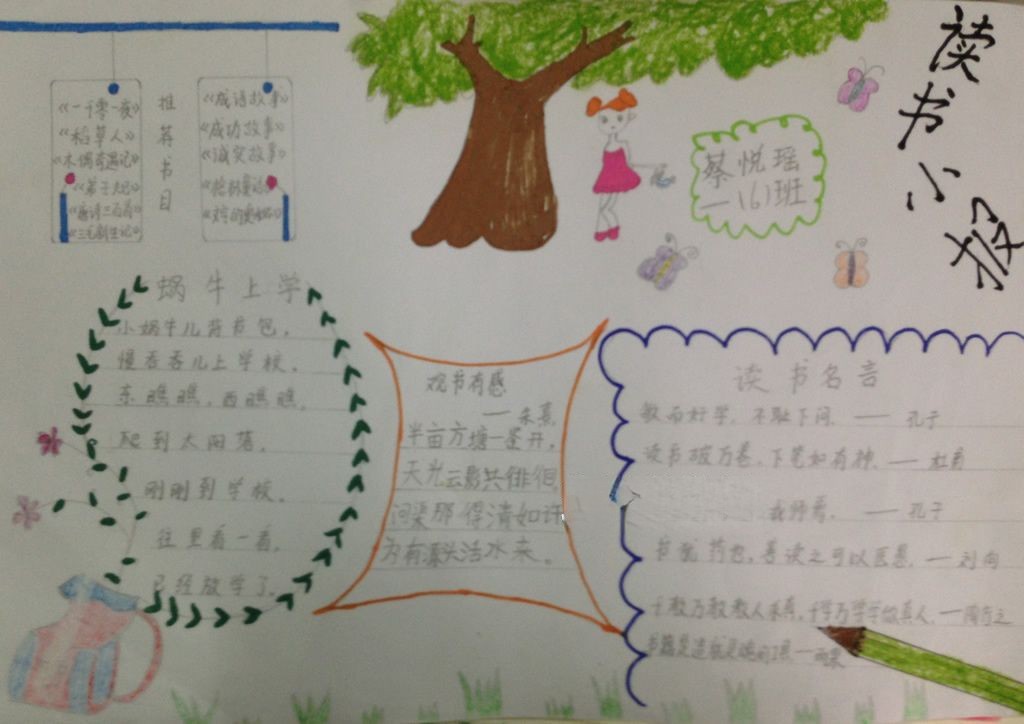 读书小报
《一千零一夜》
《稻草人》
《木偶奇遇记》
《弟子规》
《唐诗三百首》
推荐书目
《成语故事》
《成功故事》
《诚实故事》
蔡悦瑶
一(6)班
蜗牛上学
小蜗牛儿背书包，
慢吞吞儿上学校。
东瞧瞧，西瞧瞧，
爬到太阳落。
刚刚到学校。
往里看一看，
已经放学了。
观书有感
——朱熹
半亩方塘一鉴开，
天光云影共徘徊，
问渠那得清如许
为有源头活水来。
读书名言
敏而好学，不耻下问。——孔子
读书破万卷，下笔如有神。——杜甫
我师焉。——孔子
书犹药也，善读之可以医愚。——刘向
千教万教教人求真，千学万学学做真人。——陶行之